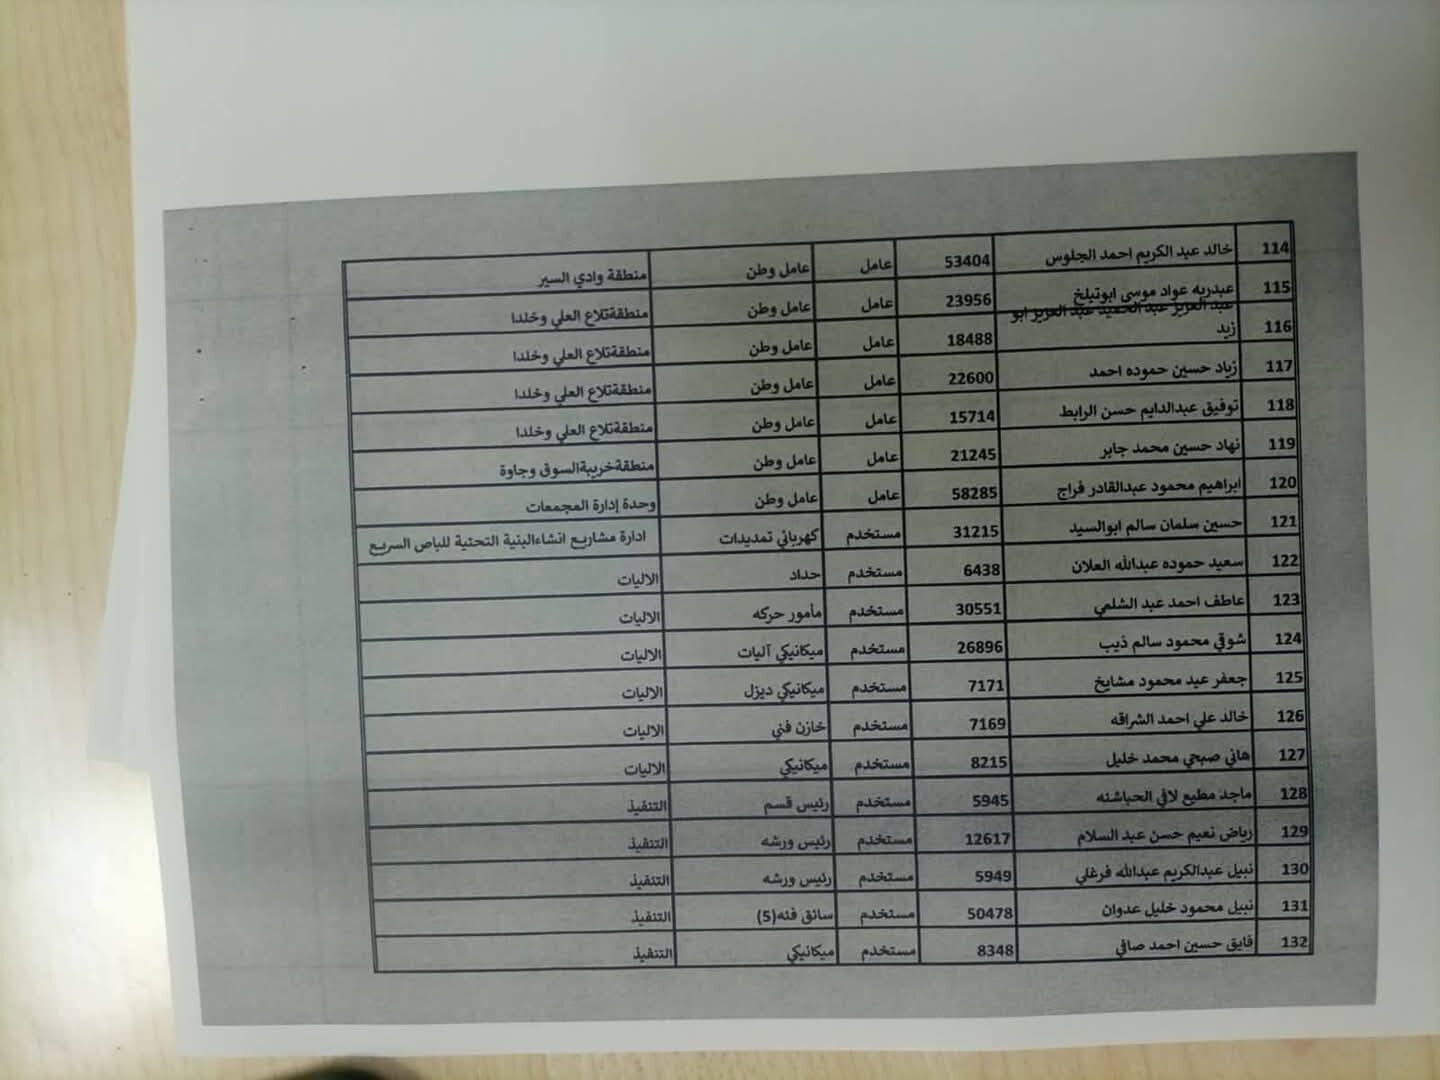 114 خالد عبد الكريم احمد الجلوس 53404 عامل عامل وطن منطقة وادي السير
115 عبدربه عواد موسى ابوتيلخ 23956 عامل عامل وطن منطقةتلاع العلي وخلدا
116 عبد العزيز عبد الحميد عبد العزيز ابو زيد 18488 عامل عامل وطن منطقةتلاع العلي وخلدا
117 زياد حسين حموده احمد 22600 عامل عامل وطن منطقةتلاع العلي وخلدا
118 توفيق عبدالدايم حسن الرابط 15714 عامل عامل وطن منطقةتلاع العلي وخلدا
119 نهاد حسين محمد جابر 21245 عامل عامل وطن منطقةخريبةالسوق وجاوة
120 ابراهيم محمود عبدالقادر فراج 58285 عامل عامل وطن وحدة إدارة المجمعات
121 حسين سلمان سالم ابوالسيد 31215 مستخدم كهربائي تمديدات ادارة مشاريع انشاءالبنية التحتية للباص السريع
122 سعيد حموده عبدالله العلان 6438 مستخدم حداد الاليات
123 عاطف احمد عبد الشلمي 30551 مستخدم مأمور حركه الاليات
124 شوقي محمود سالم ذيب 26896 مستخدم ميكانيكي آليات الاليات
125 جعفر عيد محمود مشايخ 7171 مستخدم ميكانيكي ديزل الاليات
126 خالد علي احمد الشراقه 7169 مستخدم خازن فني الاليات
127 هاني صبحي محمد خليل 8215 مستخدم ميكانيكي الاليات
128 ماجد مطيع لافي الحباشنه 5945 مستخدم رئيس قسم التنفيذ
129 رياض نعيم حسن عبد السلام 12617 مستخدم رئيس ورشه التنفيذ
130 نبيل عبدالكريم عبدالله فرغلي 5949 مستخدم رئيس ورشه التنفيذ
131 نبيل محمود خليل عدوان 50478 مستخدم سائق فئه(5) التنفيذ
132 فايق حسين احمد صافي 8348 مستخدم ميكانيكي التنفيذ